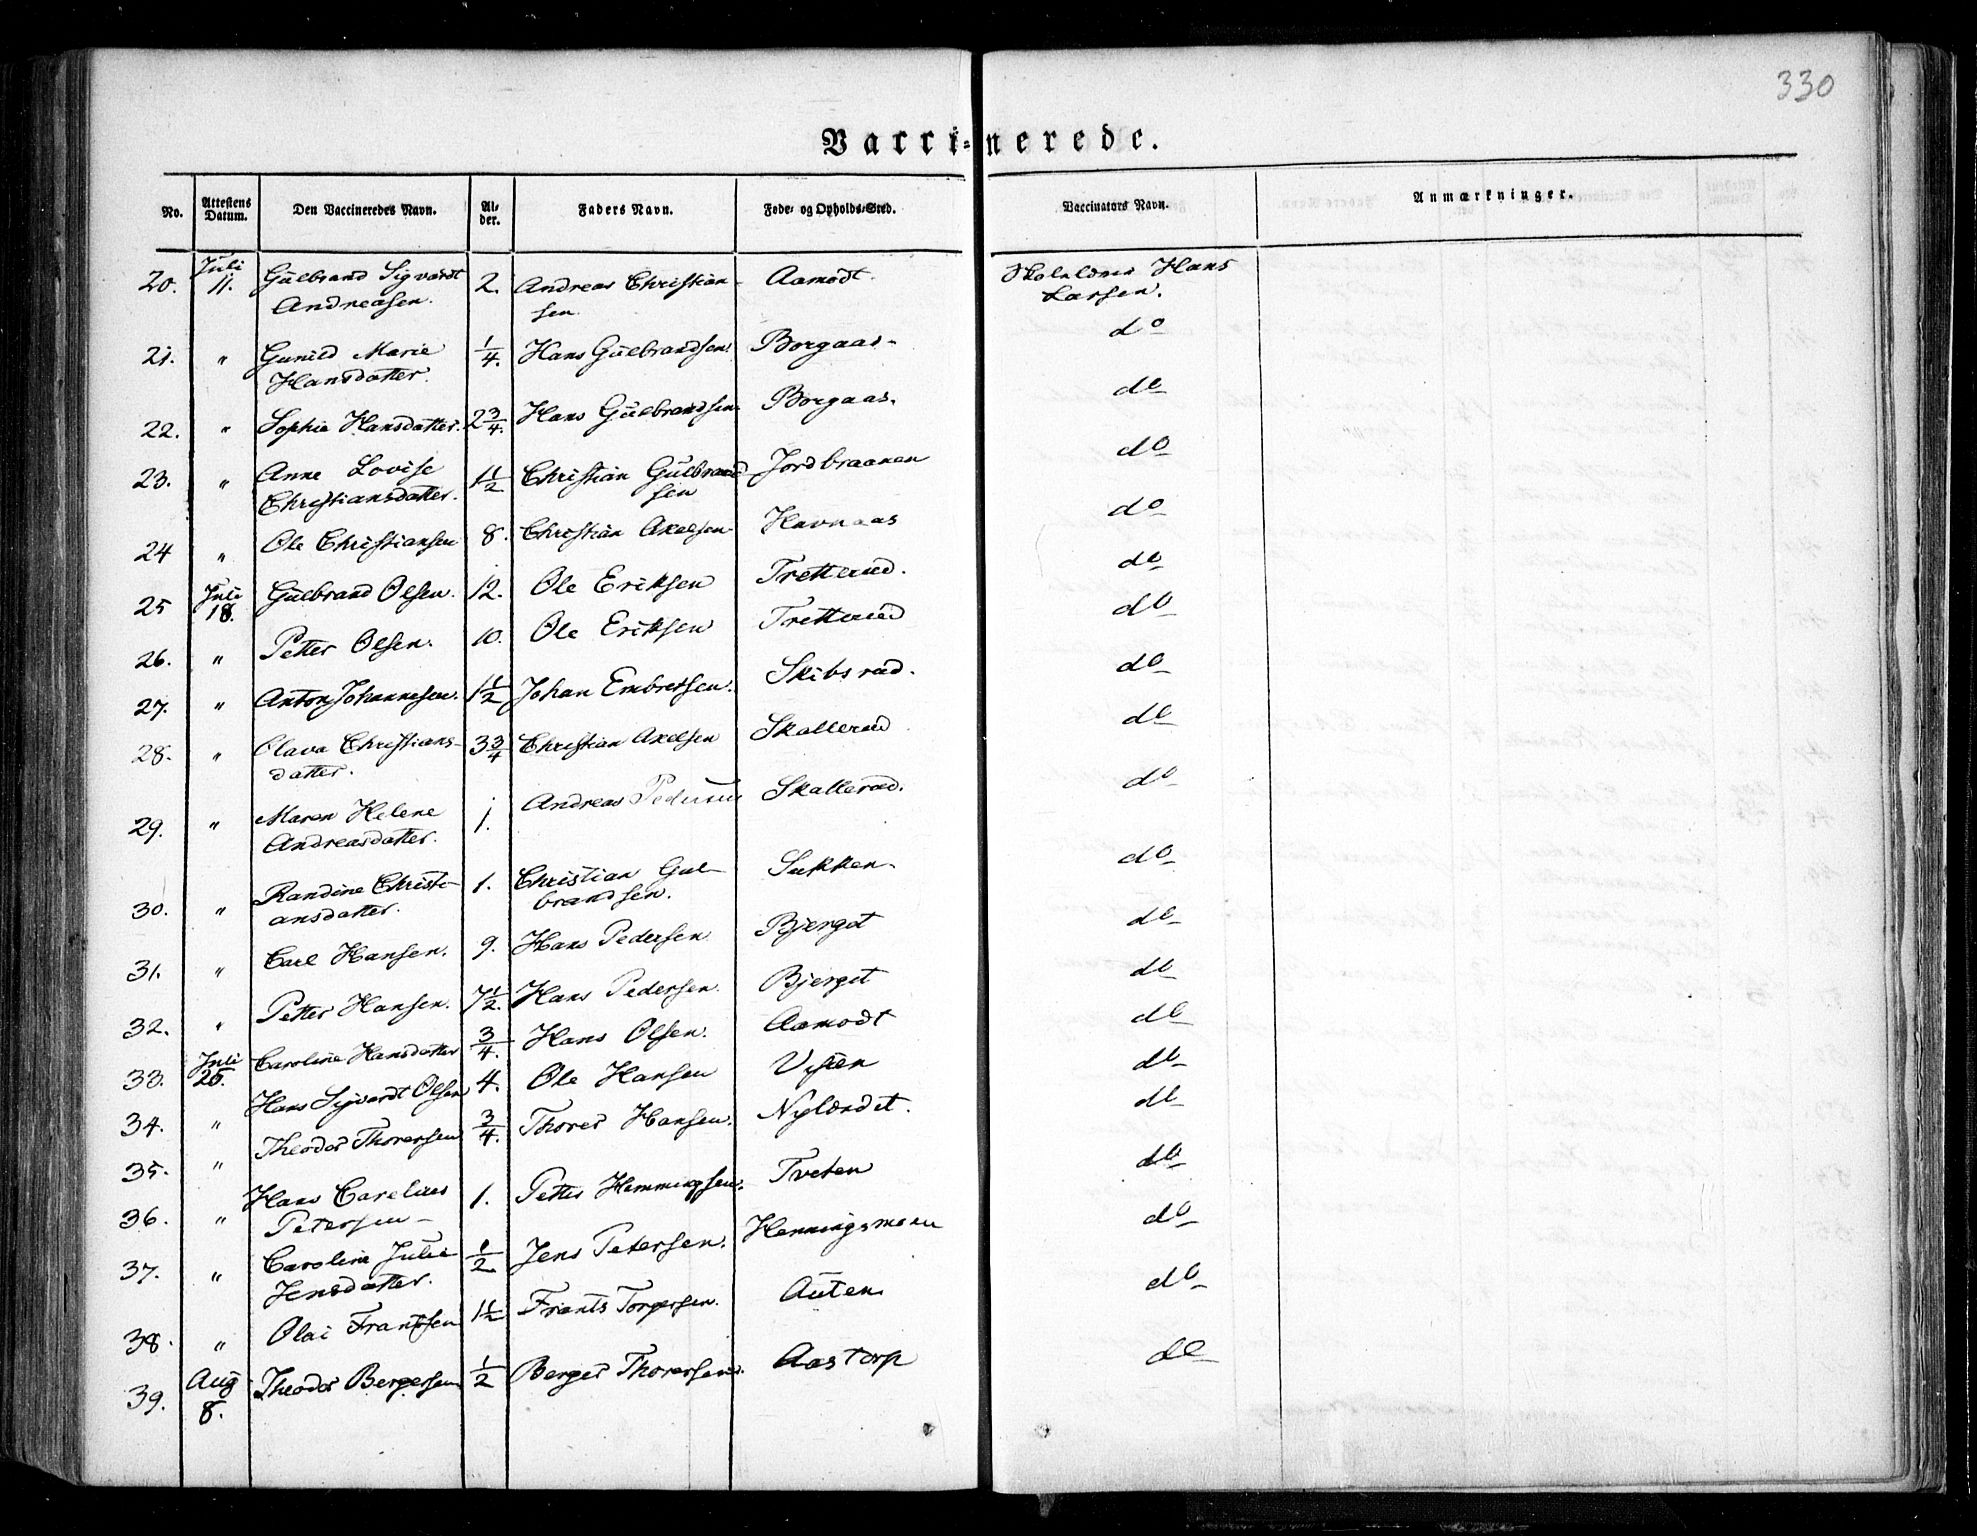 330
Vacci-nerede.
No. Attestens Datum. Den Vaccineredes Navn. Al-der. Faders Navn. Føde- og Opholds-Sted. Vaccinators Navn. Anmærkninger.
20. Juli 11. Gulbrand Sigvardt 2. Andreas Christian- Aamodt Hans
Andreasen. sen Larsen.
21. " Gunild Marie 1/4. Hans Gulbrandsen. Borgaas. do
Hansdatter.
22. " Sophie Hansdatter. 2 3/4. Hans Gulbrandsen Borgaas. do
23. " Anne Lovise 1 1/2 Christian Gulbrand Jordbraanen do
Christiansdatter. sen
24 " Ole Christiansen 8. Christian Axelsen Havnaas do
25 Juli 18. Gulbrand Olsen. 12. Ole Eriksen Tretterud. do
26. " Petter Olsen. 10. Ole Eriksen Tretterud do
27. " Anton Johannesen. 1 1/2 Johan Embretsen. Skibsrud. do
28. " Olava Christians- 3 3/4 Christian Axelsen Skallerud do
datter.
29. " Maren Helene 1. Andreas Pedersen Skallerud. do
Andreasdatter.
30. " Randine Christi- 1. Christian Gul- Sukken. do
ansdatter. brandsen.
31. " Carl Hansen. 9. Hans Pedersen Bjerget do
32. " Petter Hansen. 7 1/2. Hans Pedersen. Bjerget do
33. Juli 25. Caroline Hansdatter 3/4. Hans Olsen. Aamodt do
34. " Hans Sigvardt Olsen 4. Ole Hansen do
35. " Theodor Thoresen 3/4. Thorer Hansen. Nylændet. do
36. " Hans Carelius 1. Petter Hemmingsen. Tveten do
Petersen
37. " Caroline Julie 1/2. Jens Petersen. Henningsmoen do
Jensdatter.
38. " Olai Frantsen 1 1/2 Frants Torgersen. Auten do
39. Aug 8. Theodor Bergersen 1/2 Berger Thorersen. Aastorp do